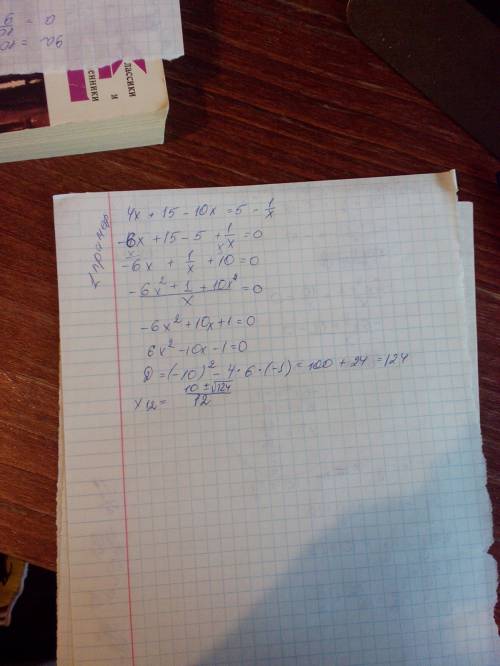 a = 9/10
9a = 10
классики
и
4x + 15 - 10x = 5 - 1/x
-6x + 15 - 5 + 1/x = 0
-6x + 1/x + 10 = 0
(-6x² + 1 + 10x)/x = 0
-6x² + 10x + 1 = 0
6x² - 10x - 1 = 0
D = (-10)² - 4·6·(-1) = 100 + 24 = 124
x₁₂ = (10 ± √124)/12